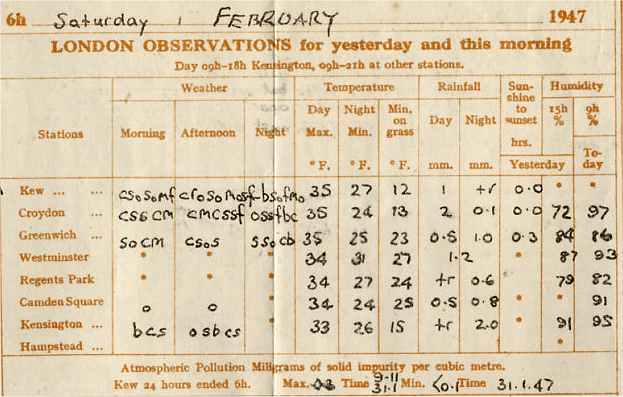 6h Saturday 1 FEBRUARY 1947
LONDON OBSERVATIONS for yesterday and this morning
Day 09h–18h Kensington, 09h–21h at other stations.
Stations Weather Temperature Rainfall Sunshine to sunset Humidity
Morning Afternoon Night Day Max. Night Min. Min. on grass Day Night hrs. 15h % 9h %
°F. °F. °F. mm. mm. Yesterday To-day
Kew ... ... 35 27 12 1 tr 0.0 * *
Croydon ... csscm cmcssf ossfbc 35 24 13 2 0.1 0.0 72 97
Greenwich ... socm csos ssocb 35 25 23 0.5 1.0 0.3 84 86
Westminster * * * 34 31 27 1.2 * 87 93
Regents Park * * * 34 27 24 tr 0.6 * 79 82
Camden Square o o 34 24 25 0.5 0.8 * * 91
Kensington ... bcs osbcs 33 26 15 tr 2.0 * 91 95
Hampstead ... * * * * * * * * * * *
Atmospheric Pollution Milligrams of solid impurity per cubic metre.
Kew 24 hours ended 6h. Max. Time 9-11 31.1 Min. <0.1 Time 31.1.47